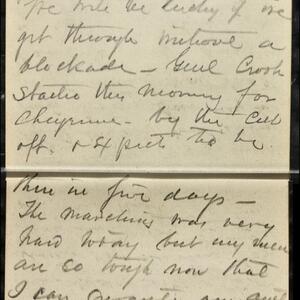 We will be lucky if we
get through without a
blockade - Genl Crook
started this morning for
Cheyenne - by the cut
off. & expects to be
there in five days -
The marching was very
hard today but my men
are so tough now that
I can